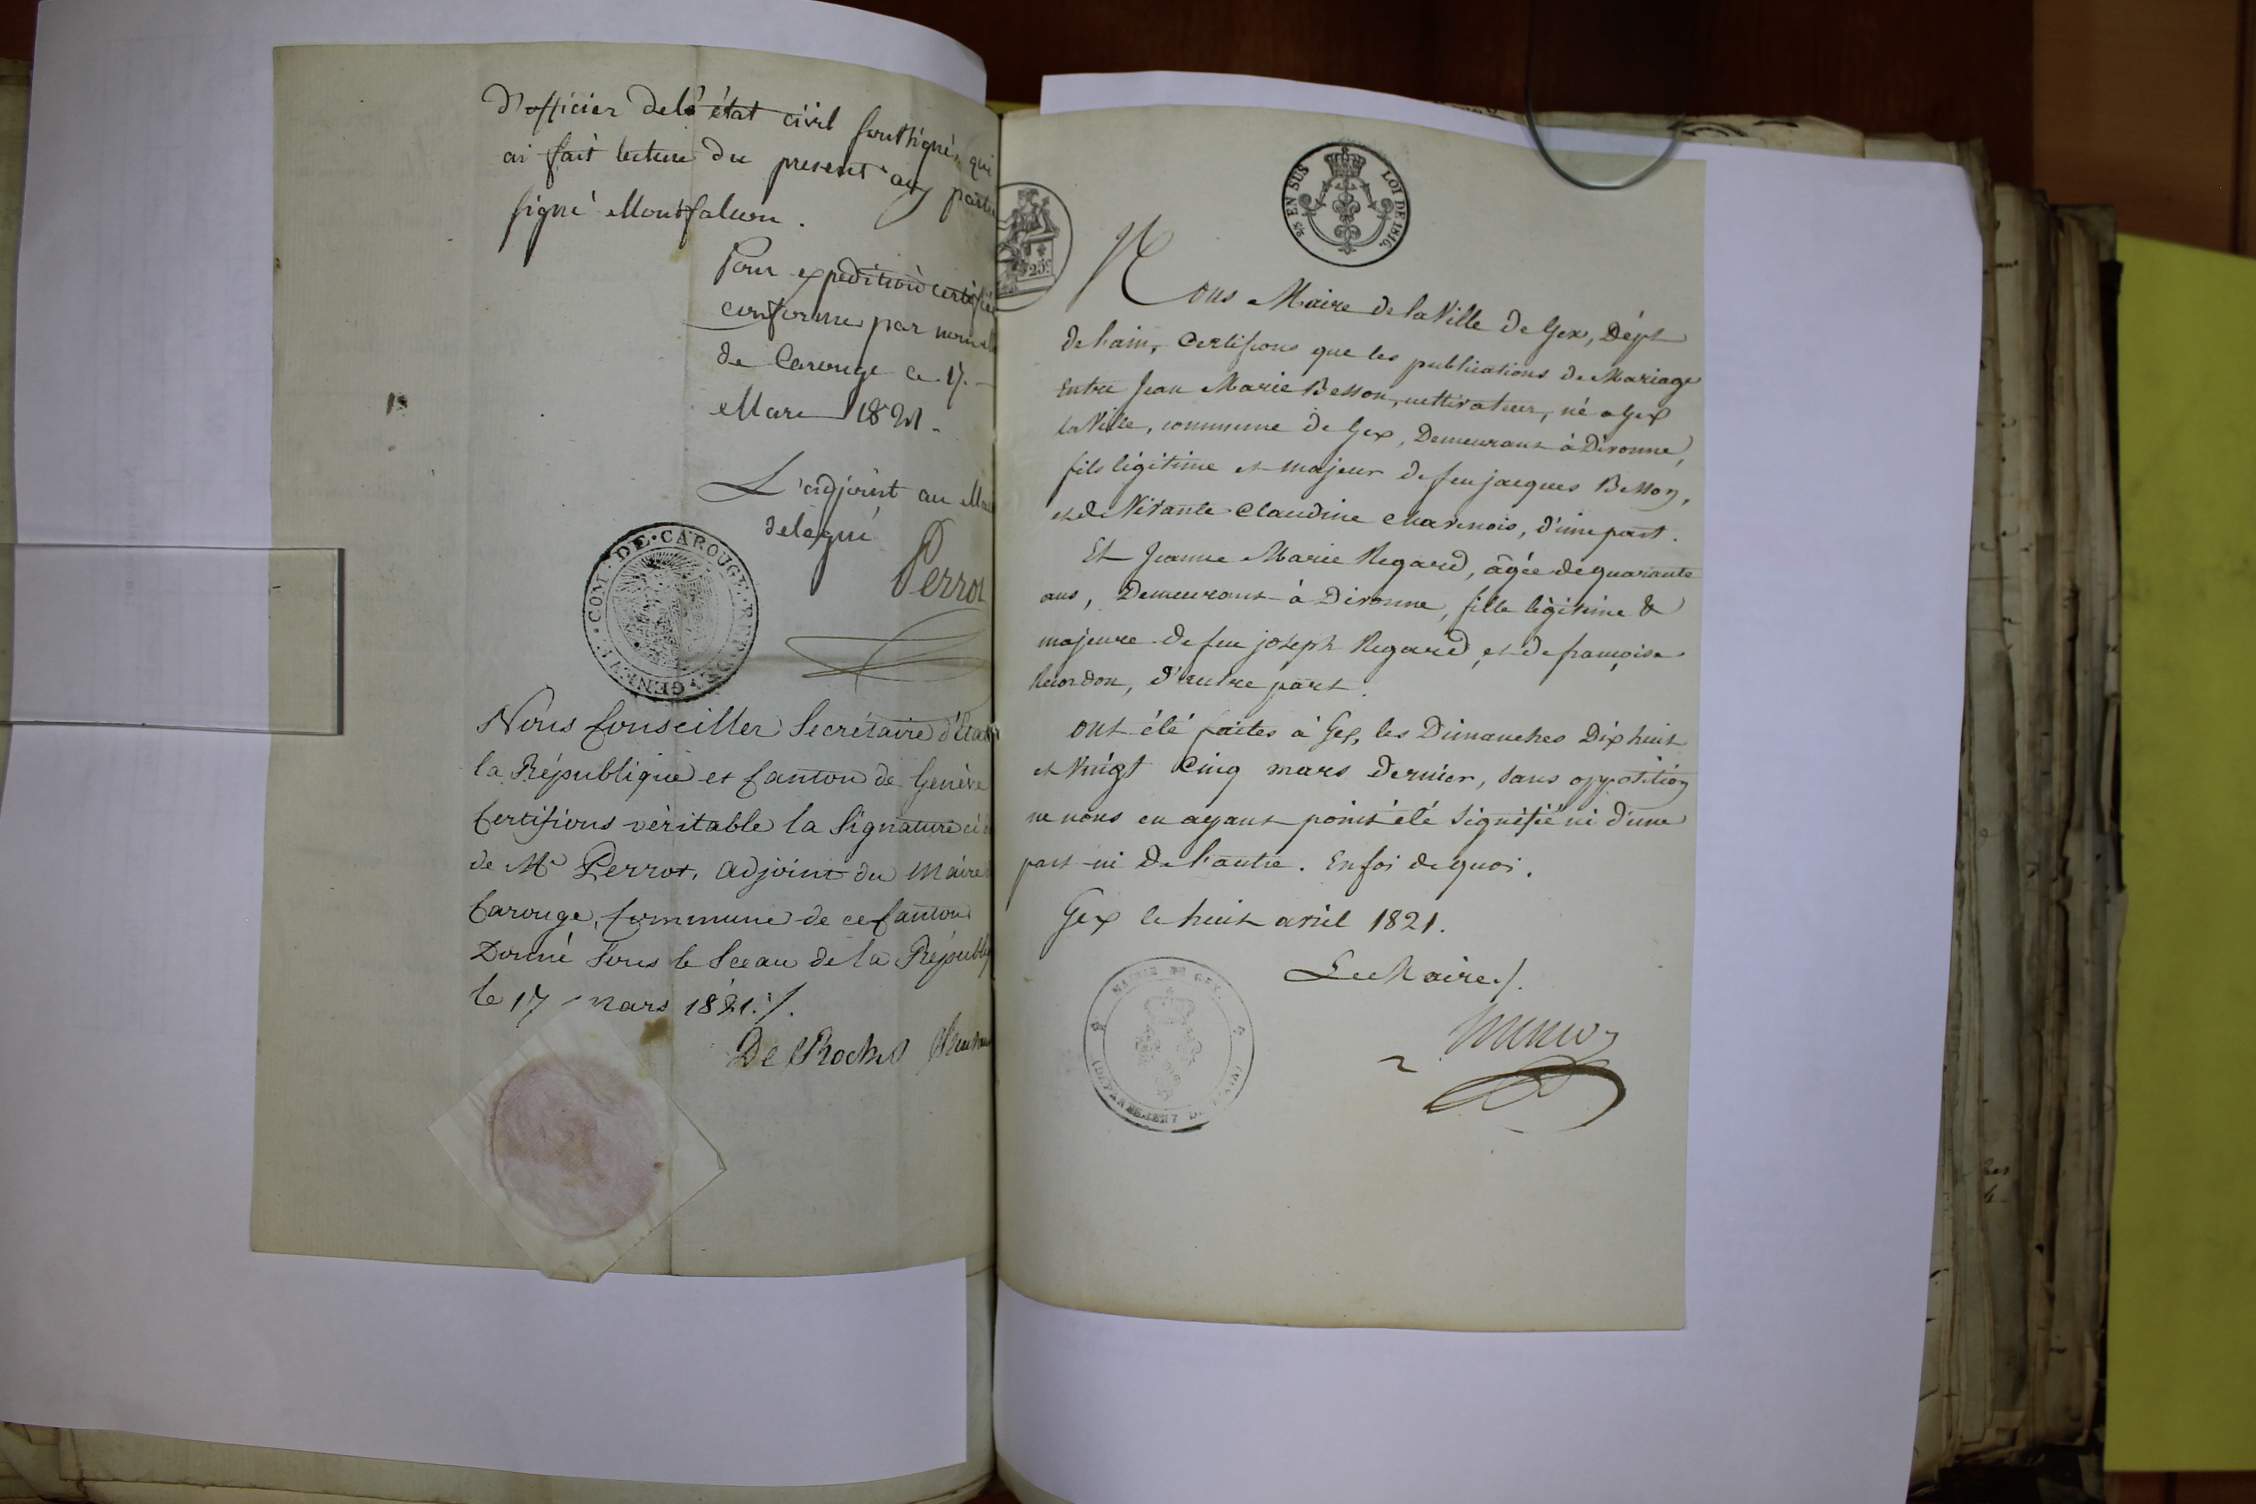 d'officier de l'état civil soussigné, qui
ai fait lecture du present aux partie
signé Montfalcon.
Pour expédition certifiée
conforme par nous
de Carouge ce 17.
Mars 1821.
L'adjoint au Mai
délégué
Perrot
COM. DE. CAROUGE. REP. DE. GENEVE.
Nous Conseiller Secrétaire d'État
la République et Canton de Genève
Certifions véritable la Signature ci
de Mr. Perrot, adjoint du Maire
Carouge, Commune de ce Canton
Donné sous le Sceau de la Républi
le 17 mars 1821./.
De Roches
25 EN SUS LOI DE 1816.
25c
Nous Maire de la Ville de Gex, Dépt
de l'ain, Certifions que les publications de Mariage
Entre Jean Marie Besson, cultivateur, né a Gex
la Ville, commune de Gex, Demeurant à Divonne,
fils légitime et majeur de feu jacques Besson,
et de Vivante Claudine Charnois, d'une part.
Et Jeanne Marie Regard, âgée de quarante
ans, Demeurant à Divonne, fille légitime &
majeure de feu joseph Regard, et de françoise
Recordon, d'autre part.
ont été faites à Gex, les Dimanches Dix huit
et Vingt Cinq mars Dernier, sans opposition
ne nous en ayant point été signifié ni d'une
part ni de l'autre. En foi de quoi.
Gex le huit avril 1821.
Le Maire./.
MAIRIE DE GEX.
(DÉPARTEMENT DE L'AIN)